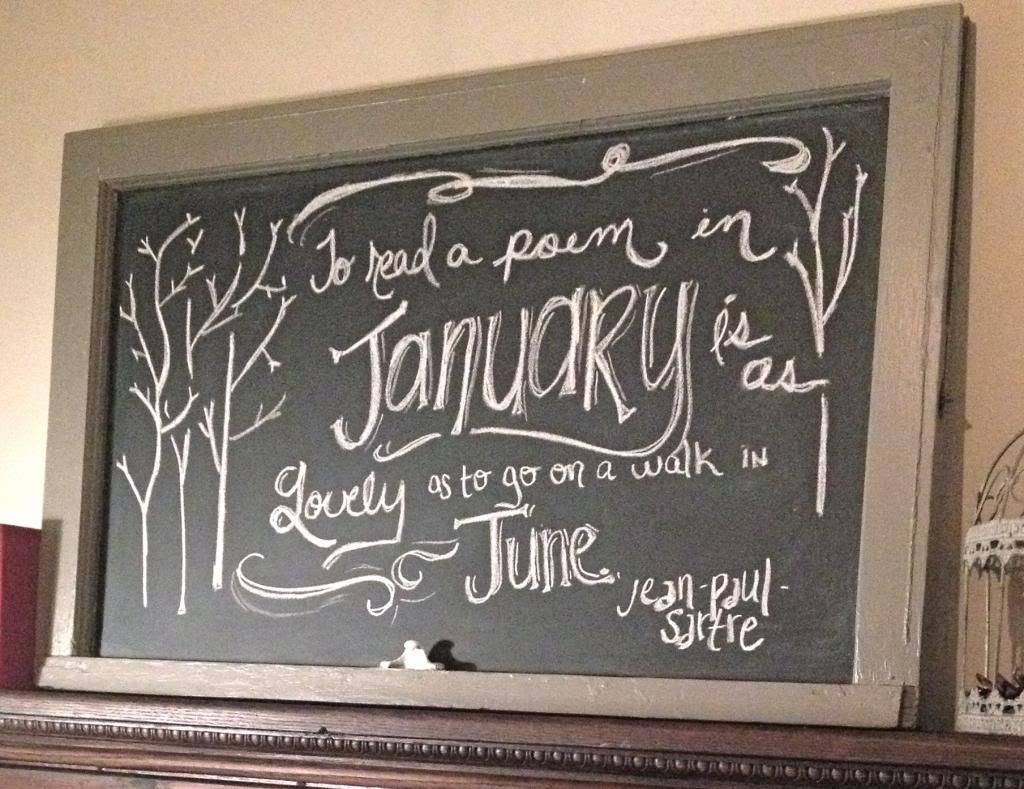 To read a poem in
January is
as
Lovely as to go on a walk in
June.
jean-paul-
sartre